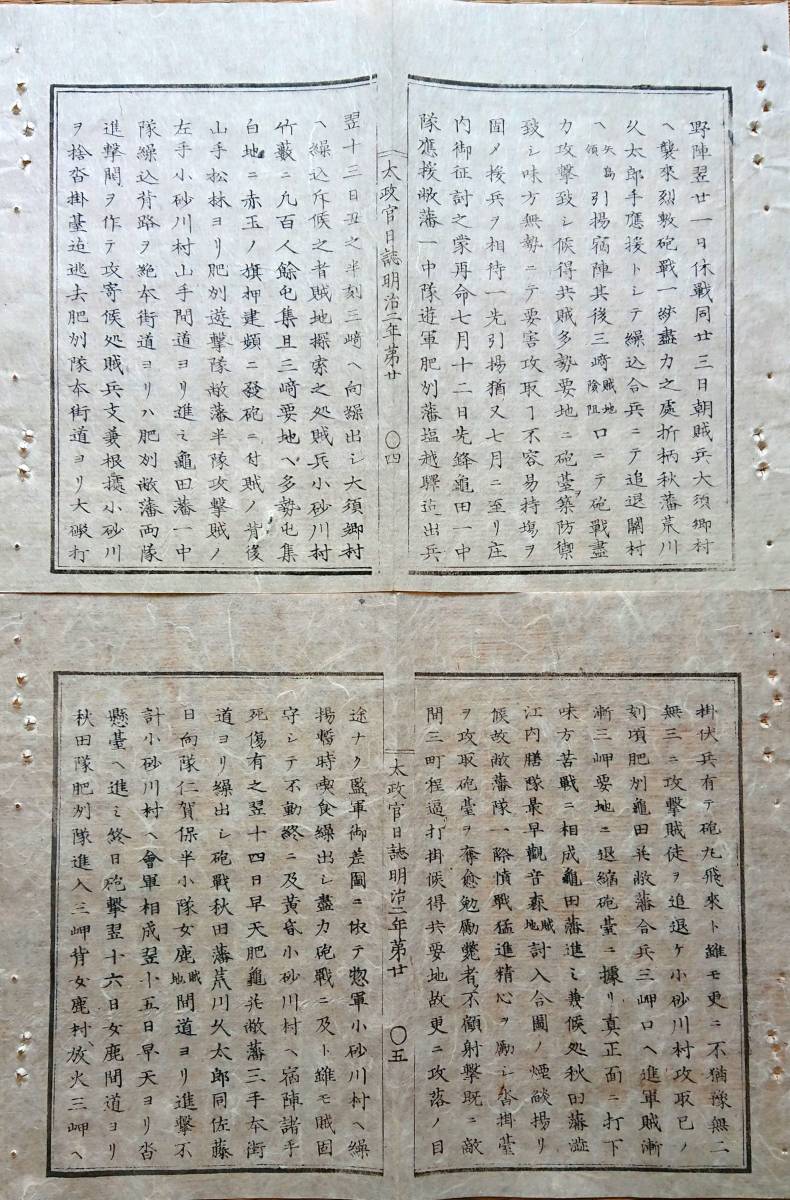 野陣翌廿一日休戰同廿三日朝賊兵大須郷村
ヘ襲來烈敷砲戰一渉盡力之處折柄秋藩荒川
久太郎手應援トシテ繰込合兵ニテ追退關村
矢島領ヘ引揚宿陣其後三﨑賊地險阻口ニテ砲戰盡
力攻擊致シ候得共賊多勢要地ニ砲䑓築防禦
致シ味方無勢ニテ要害攻取ヿ不容易持塲ヲ
固メ援兵ヲ相待一先引揚猶又七月ニ至リ庄
内御征討之蒙再命七月十二日先鋒龜田一中
隊應援敝藩一中隊遊軍肥州藩塩越驛迠出兵
太政官日誌明治二年第廿
〇四
翌十三日丑之半刻三﨑ヘ向繰出シ大須郷村
ヘ繰込斥候之者賊地探索之処賊兵小砂川村
竹藪ニ凡百人餘屯集且三﨑要地ヘ多勢屯集
白地ニ赤玉ノ旗押建頻ニ發砲ニ付賊ノ背後
山手松林ヨリ肥州遊擊隊敝藩半隊攻擊賊ノ
左手小砂川村山手間道ヨリ進ミ龜田藩一中
隊繰込背路ヲ絶本街道ヨリハ肥州敝藩両隊
進擊鬨ヲ作テ攻寄候処賊兵支兼根據小砂川
ヲ捨沓掛䑓迠逃去肥州隊本街道ヨリ大礮打
掛伏兵有テ砲丸飛來ト雖モ更ニ不猶豫無二
無三ニ攻擊賊徒ヲ追退ケ小砂川村攻取巳ノ
刻頃肥州龜田共敝藩合兵三岬口ヘ進軍賊漸
漸三岬要地ニ退縮砲䑓ニ據リ真正面ニ打下
味方苦戰ニ相成龜田藩進ミ兼候処秋田藩澁
江内膳隊最早觀音森賊地討入合圖ノ煙燄揚リ
候故敝藩隊一際憤戰猛進精心ヲ勵シ沓掛䑓
ヲ攻取砲䑓ヲ奪愈勉勵斃者不顧射擊既ニ敵
間三町程逼打掛候得共要地故更ニ攻落ノ目
太政官日誌明治二年第廿
〇五
途ナク監軍御差圖ニ依テ惣軍小砂川村ヘ繰
揚暫時喫食繰出シ盡力砲戰ニ及ト雖モ賊固
守シテ不動終ニ及黄昏小砂川村ヘ宿陣諸手
死傷有之翌十四日早天肥龜共敝藩三手本街
道ヨリ繰出シ砲戰秋田藩荒川久太郎同佐藤
日向隊仁賀保半小隊女鹿賊地間道ヨリ進擊不
計小砂川村ヘ會軍相成翌十五日早天ヨリ沓
懸䑓ヘ進ミ終日砲擊翌十六日女鹿間道ヨリ
秋田隊肥州隊進入三岬背女鹿村放火三岬ヘ